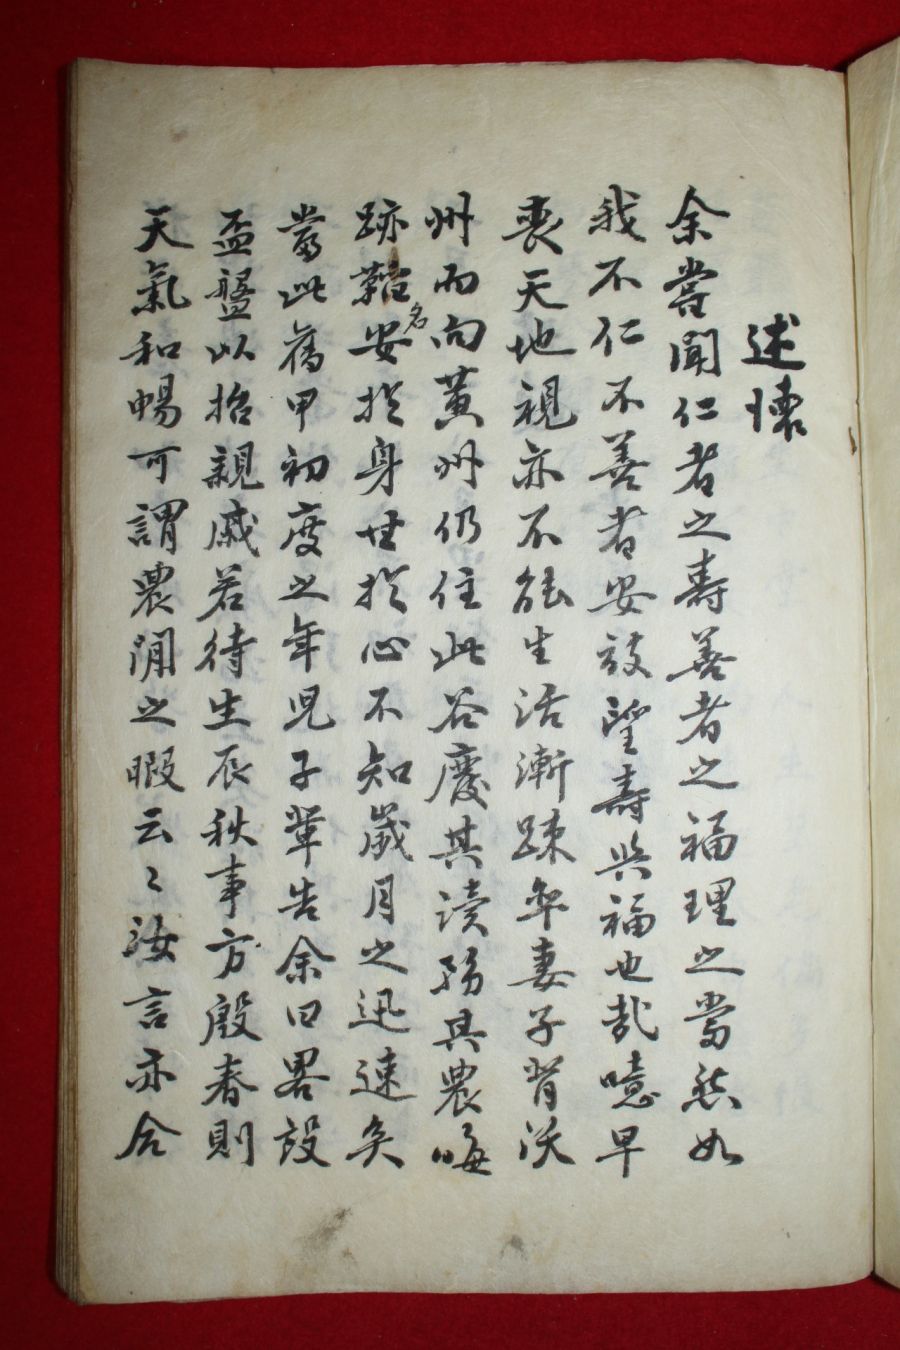 述懷
余嘗聞仁者之壽善者之福理之當然如
我不仁不善者安敢望壽與福也哉噫早
喪天地視亦不能生活漸踈率妻子背沃
州而向黃州仍住此谷慶其讀務其農晦
跡韜名安於身世於心不知歲月之迅速矣
當此舊甲初度之年児子輩告余曰畧設
盃盤以招親戚若待生辰秋事方殷春則
天氣和暢可謂農澗之暇云〻汝言亦合